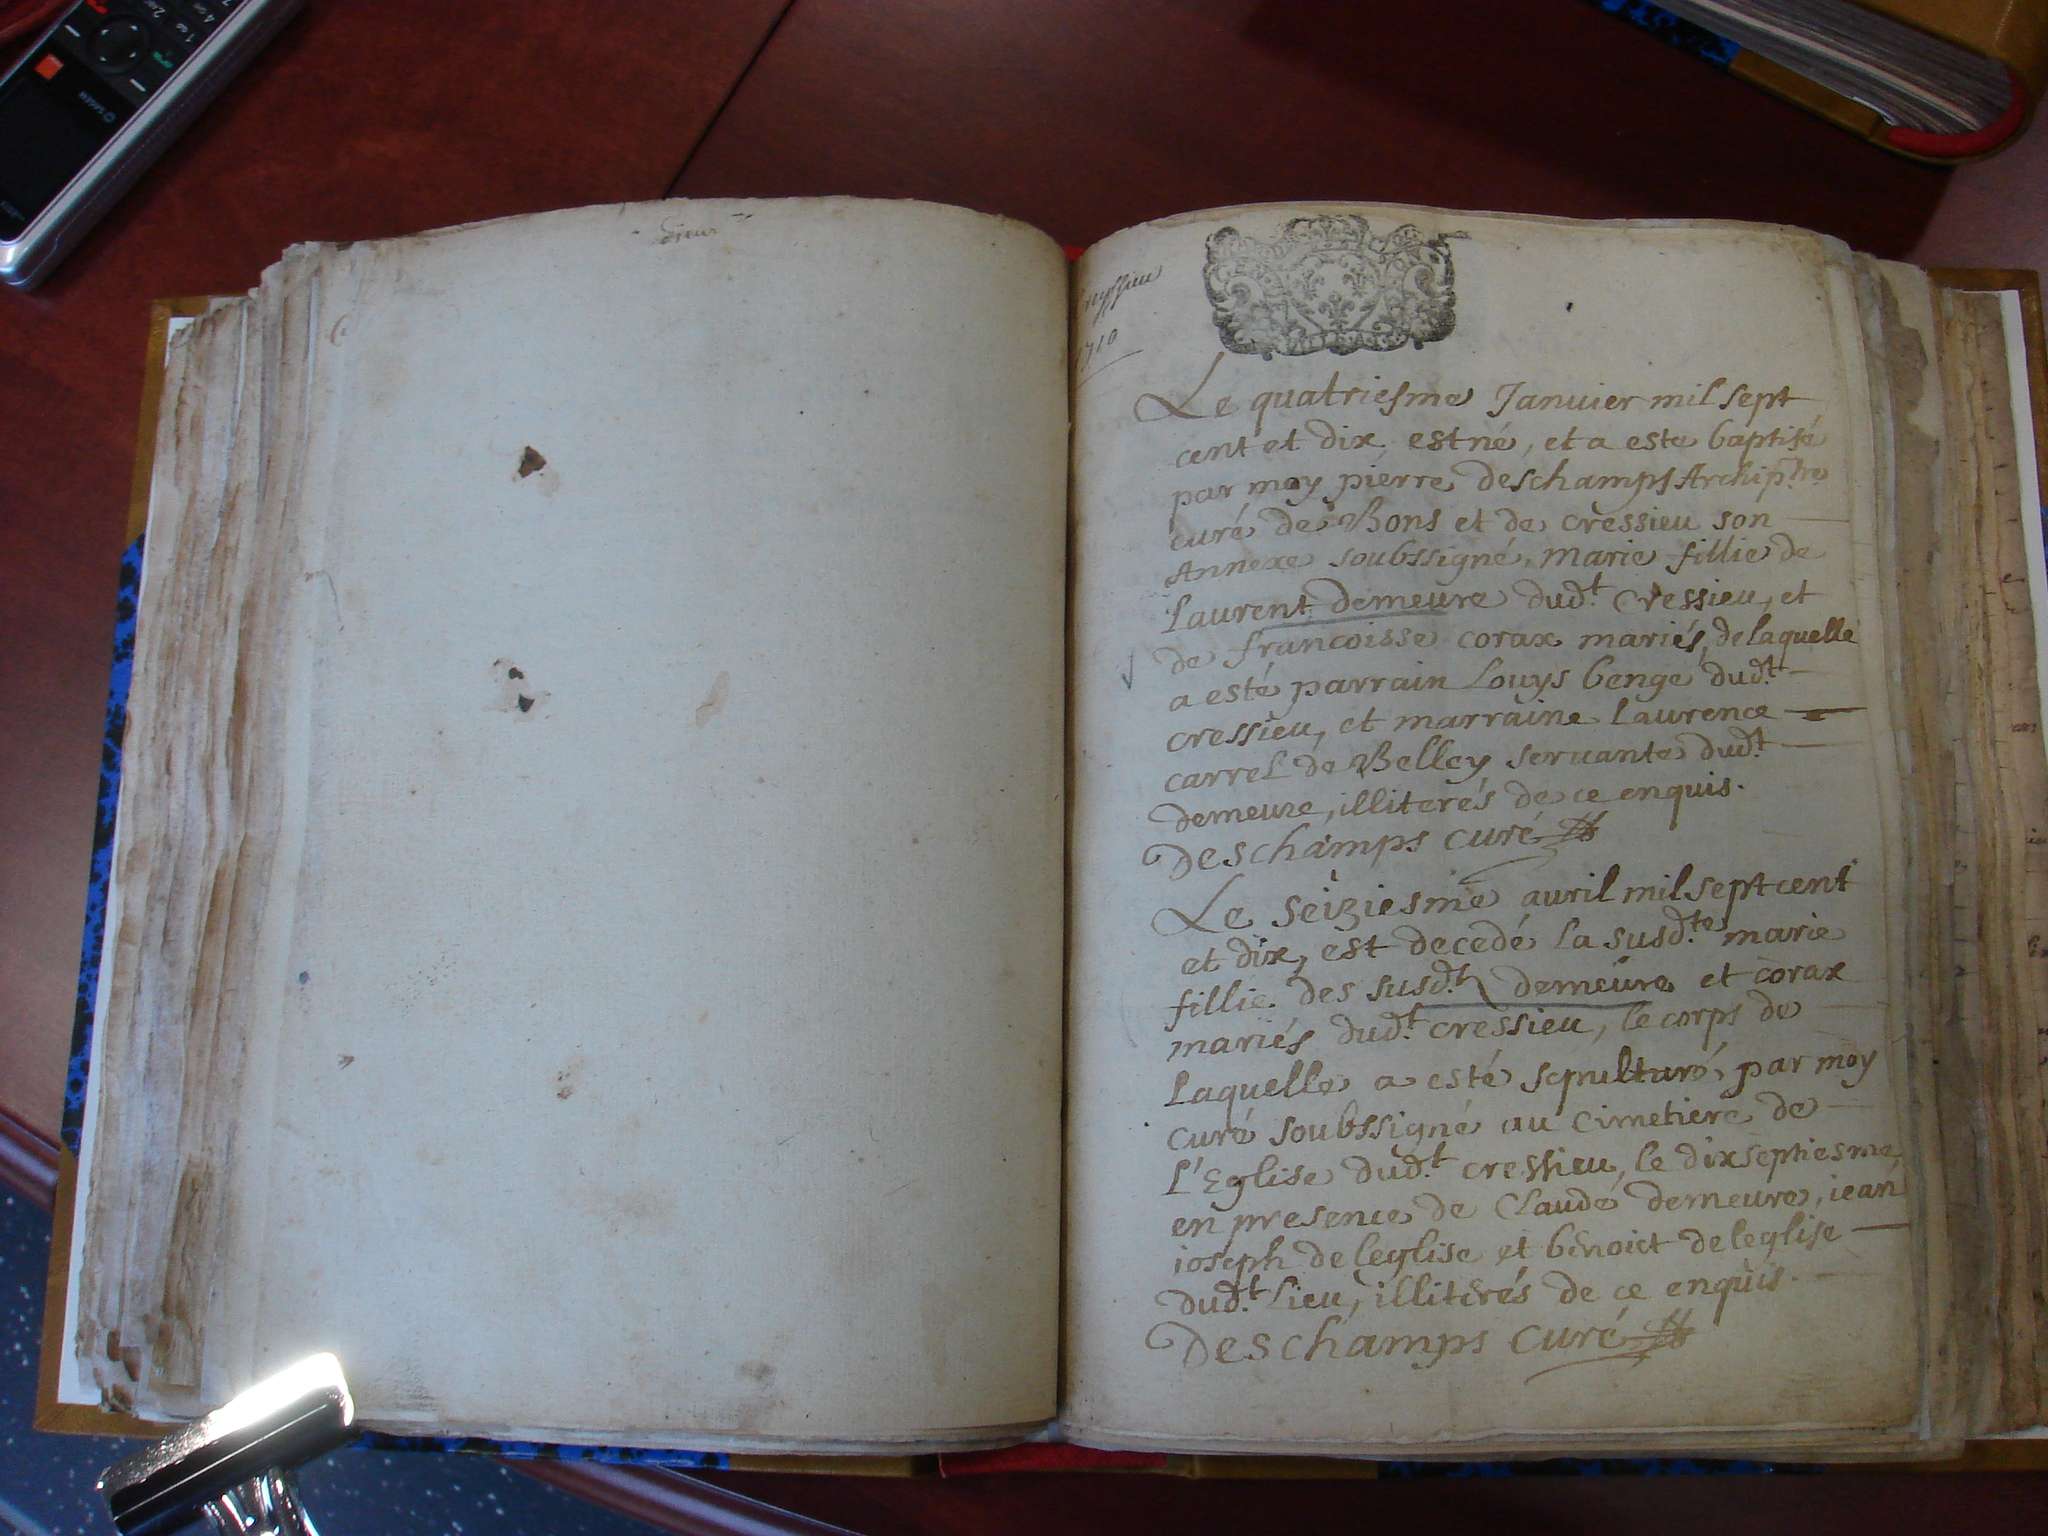 cressieu
1710
Le quatriesme Januier mil sept
cent et dix, est né, et a este baptisé
par moy pierre deschamps Archip.tre
curé de Bons et de cressieu son
Annexe soubssigné, marie fillie de
Laurent demeure dud.t cressieu, et
de francoisse corax mariés, de laquelle
a esté parrain Louys benge dud.t
cressieu, et marraine Laurence
carrel de Belley seruante dud.t
demeure, illiterés de ce enquis.
Deschamps curé
Le seiziesme auril mil sept cent
et dix, est decedé la susd.te marie
fillie des susd.ts demeure et corax
mariés dud.t cressieu, le corps de
Laquelle a esté sepulturé par moy
curé soubssigné au Cimetiere de
L'Eglise dud.t cressieu, le dixseptiesme
en presence de Claude demeure, iean
ioseph de leglise et benoict de leglise
dud.t Lieu, illiterés de ce enquis.
Deschamps curé